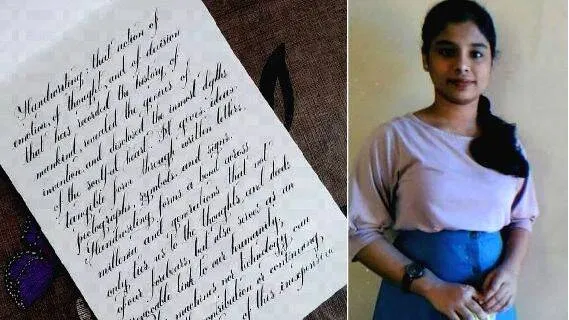 Handwriting: that action of
emotion, of thought, and of decision
that has recorded the history of
mankind, revealed the genius of
invention, and disclosed the inmost depths
of the soulful heart. It gives ideas
tangible form through written letters,
pictographs, symbols and signs.
Handwriting forms a bond across
millenia and generations that not
only ties us to the thoughts and deeds
of our forebears, but also serves as an
irrevocable link to our humanity.
machines nor technology can
contribution or continuing
of this inexpensive